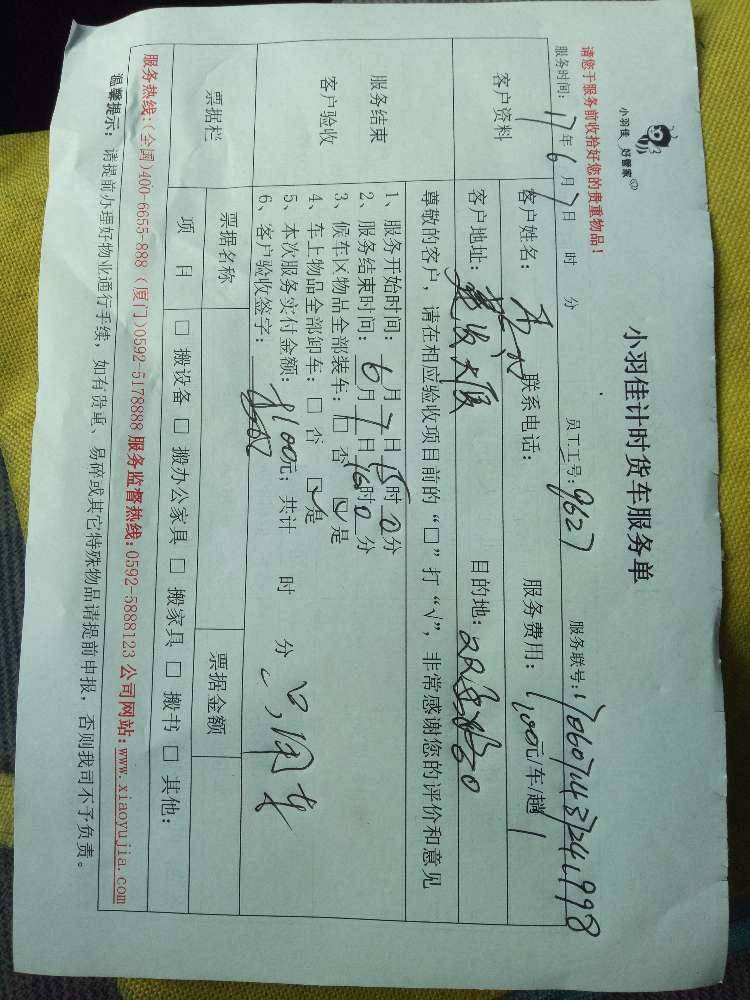 小羽佳 好管家
请您于服务前收拾好您的贵重物品！
小羽佳计时货车服务单
服务时间：17年6月7日 时 分 员工工号：9627 服务联号：
客户资料
客户姓名： 联系电话： 服务费用：100元/车/趟
客户地址： 大厦 目的地：
尊敬的客户，请在相应验收项目前的“□”打“√”，非常感谢您的评价和意见
服务结束
客户验收
1、服务开始时间：6月7日15时0分
2、服务结束时间：6月7日16时0分
3、候车区物品全部装车：□ 否 ☑ 是
4、车上物品全部卸车：□ 否 ☑ 是
5、本次服务实付金额：100元；共计 时 分
6、客户验收签字：
票据栏
票据名称 票据金额
项 目 □ 搬设备 □ 搬办公家具 □ 搬家具 □ 搬书 □ 其他：
服务热线：(全国)400-6655-888 (厦门)0592-5178888 服务监督热线：0592-5888123 公司网站：www.xiaoyujia.com
温馨提示：请提前办理好物业通行手续，如有贵重、易碎或其它特殊物品请提前申报，否则我司不予负责。